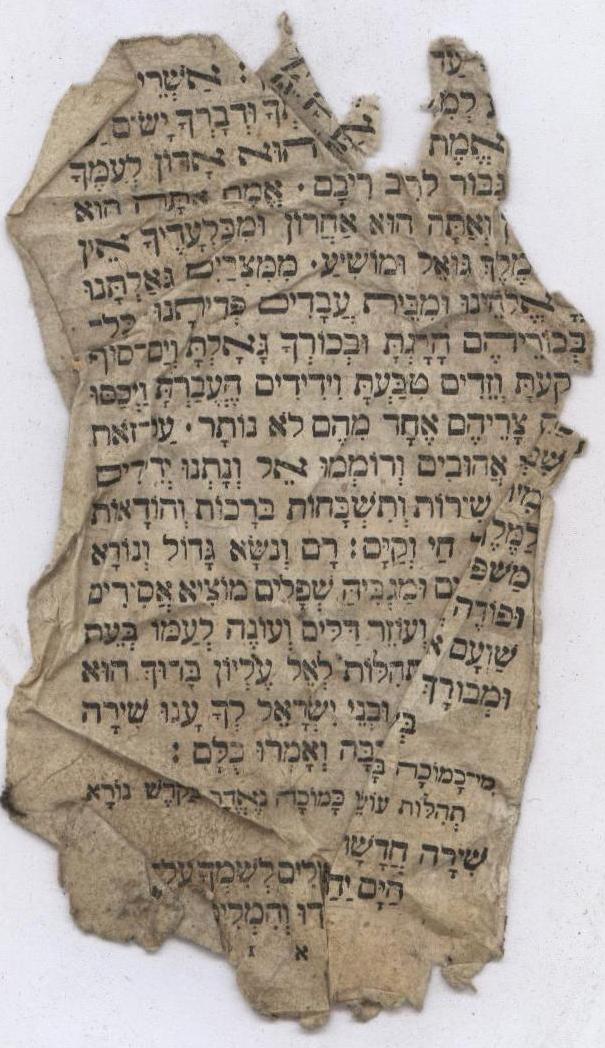 עד : אשרי
ודברך ישים
אמת הוא אדון לעמך
גבור לריב ריבם · אמת אתה הוא
ואתה הוא אחרון ומבלעדיך אין
מלך גואל ומושיע · ממצרים גאלתנו
אלהינו ומבית עבדים פדיתנו כל־
בכוריהם הרגת ובכורך גאלת וים־סוף
קעת וזדים טבעת וידידים העברת ויכסו
צריהם אחד מהם לא נותר · על־זאת
אהובים ורוממו אל ונתנו ידידים
שירות ותשבחות ברכות והודאות
למלך חי וקים : רם ונשא גדול ונורא
משפ ים ומגביה שפלים מוציא אסירים
ופודה ועוזר דלים ועונה לעמו בעת
שועם תהלות לאל עליון ברוך הוא
ומבורך ובני ישראל לך ענו שירה
בה ואמרו כלם :
מי־כמוכה
תהלות עושה כמוכה נאדר בקדש נורא
שירה חדשו
לשמך על
הים יח
והמליכו